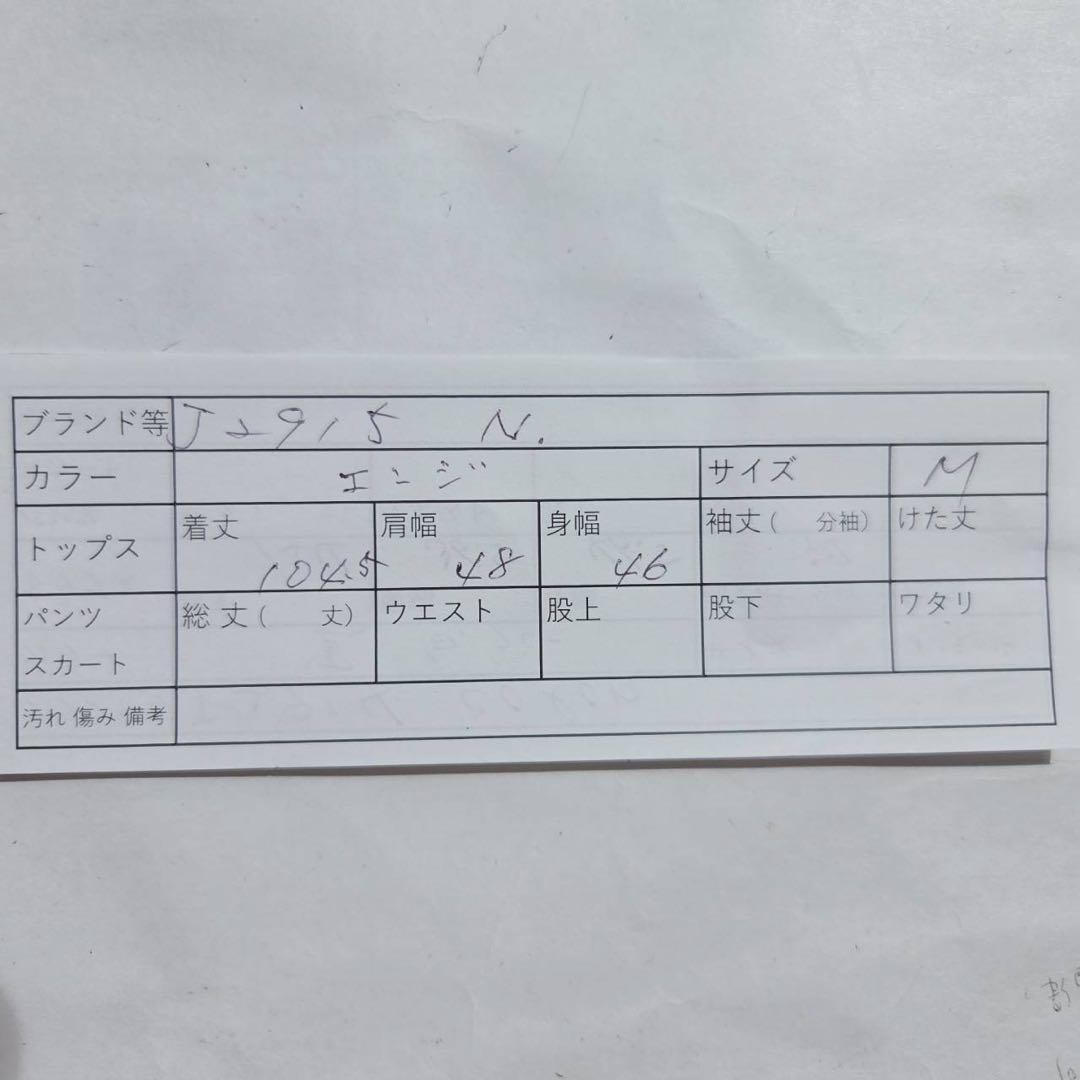 ブランド等 J2915 N.
カラー エンジ サイズ M
トップス 着丈 104.5 肩幅 48 身幅 46 袖丈( 分袖) けた丈
パンツ スカート 総丈( 丈) ウエスト 股上 股下 ワタリ
汚れ 傷み 備考